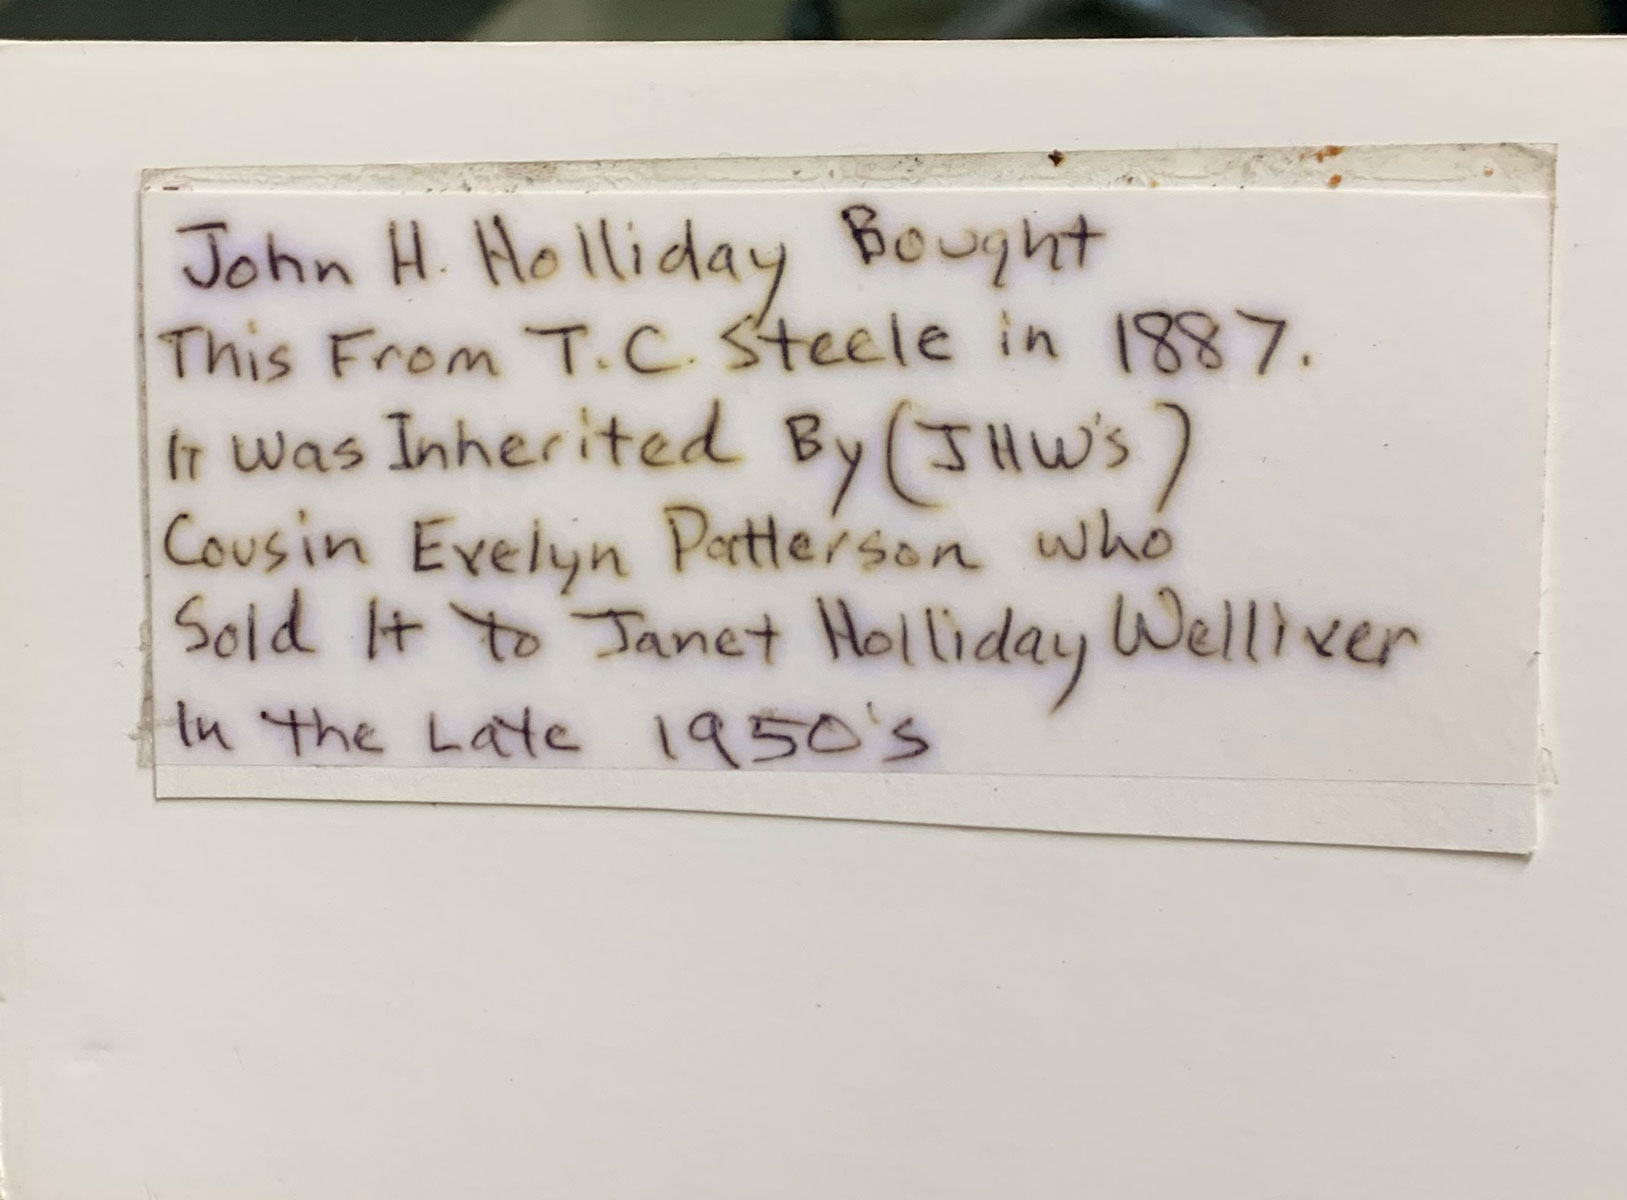 John H. Holliday Bought
This From T.C. Steele in 1887.
It Was Inherited By (JHW's)
Cousin Evelyn Patterson who
Sold It to Janet Holliday Welliver
In the Late 1950's